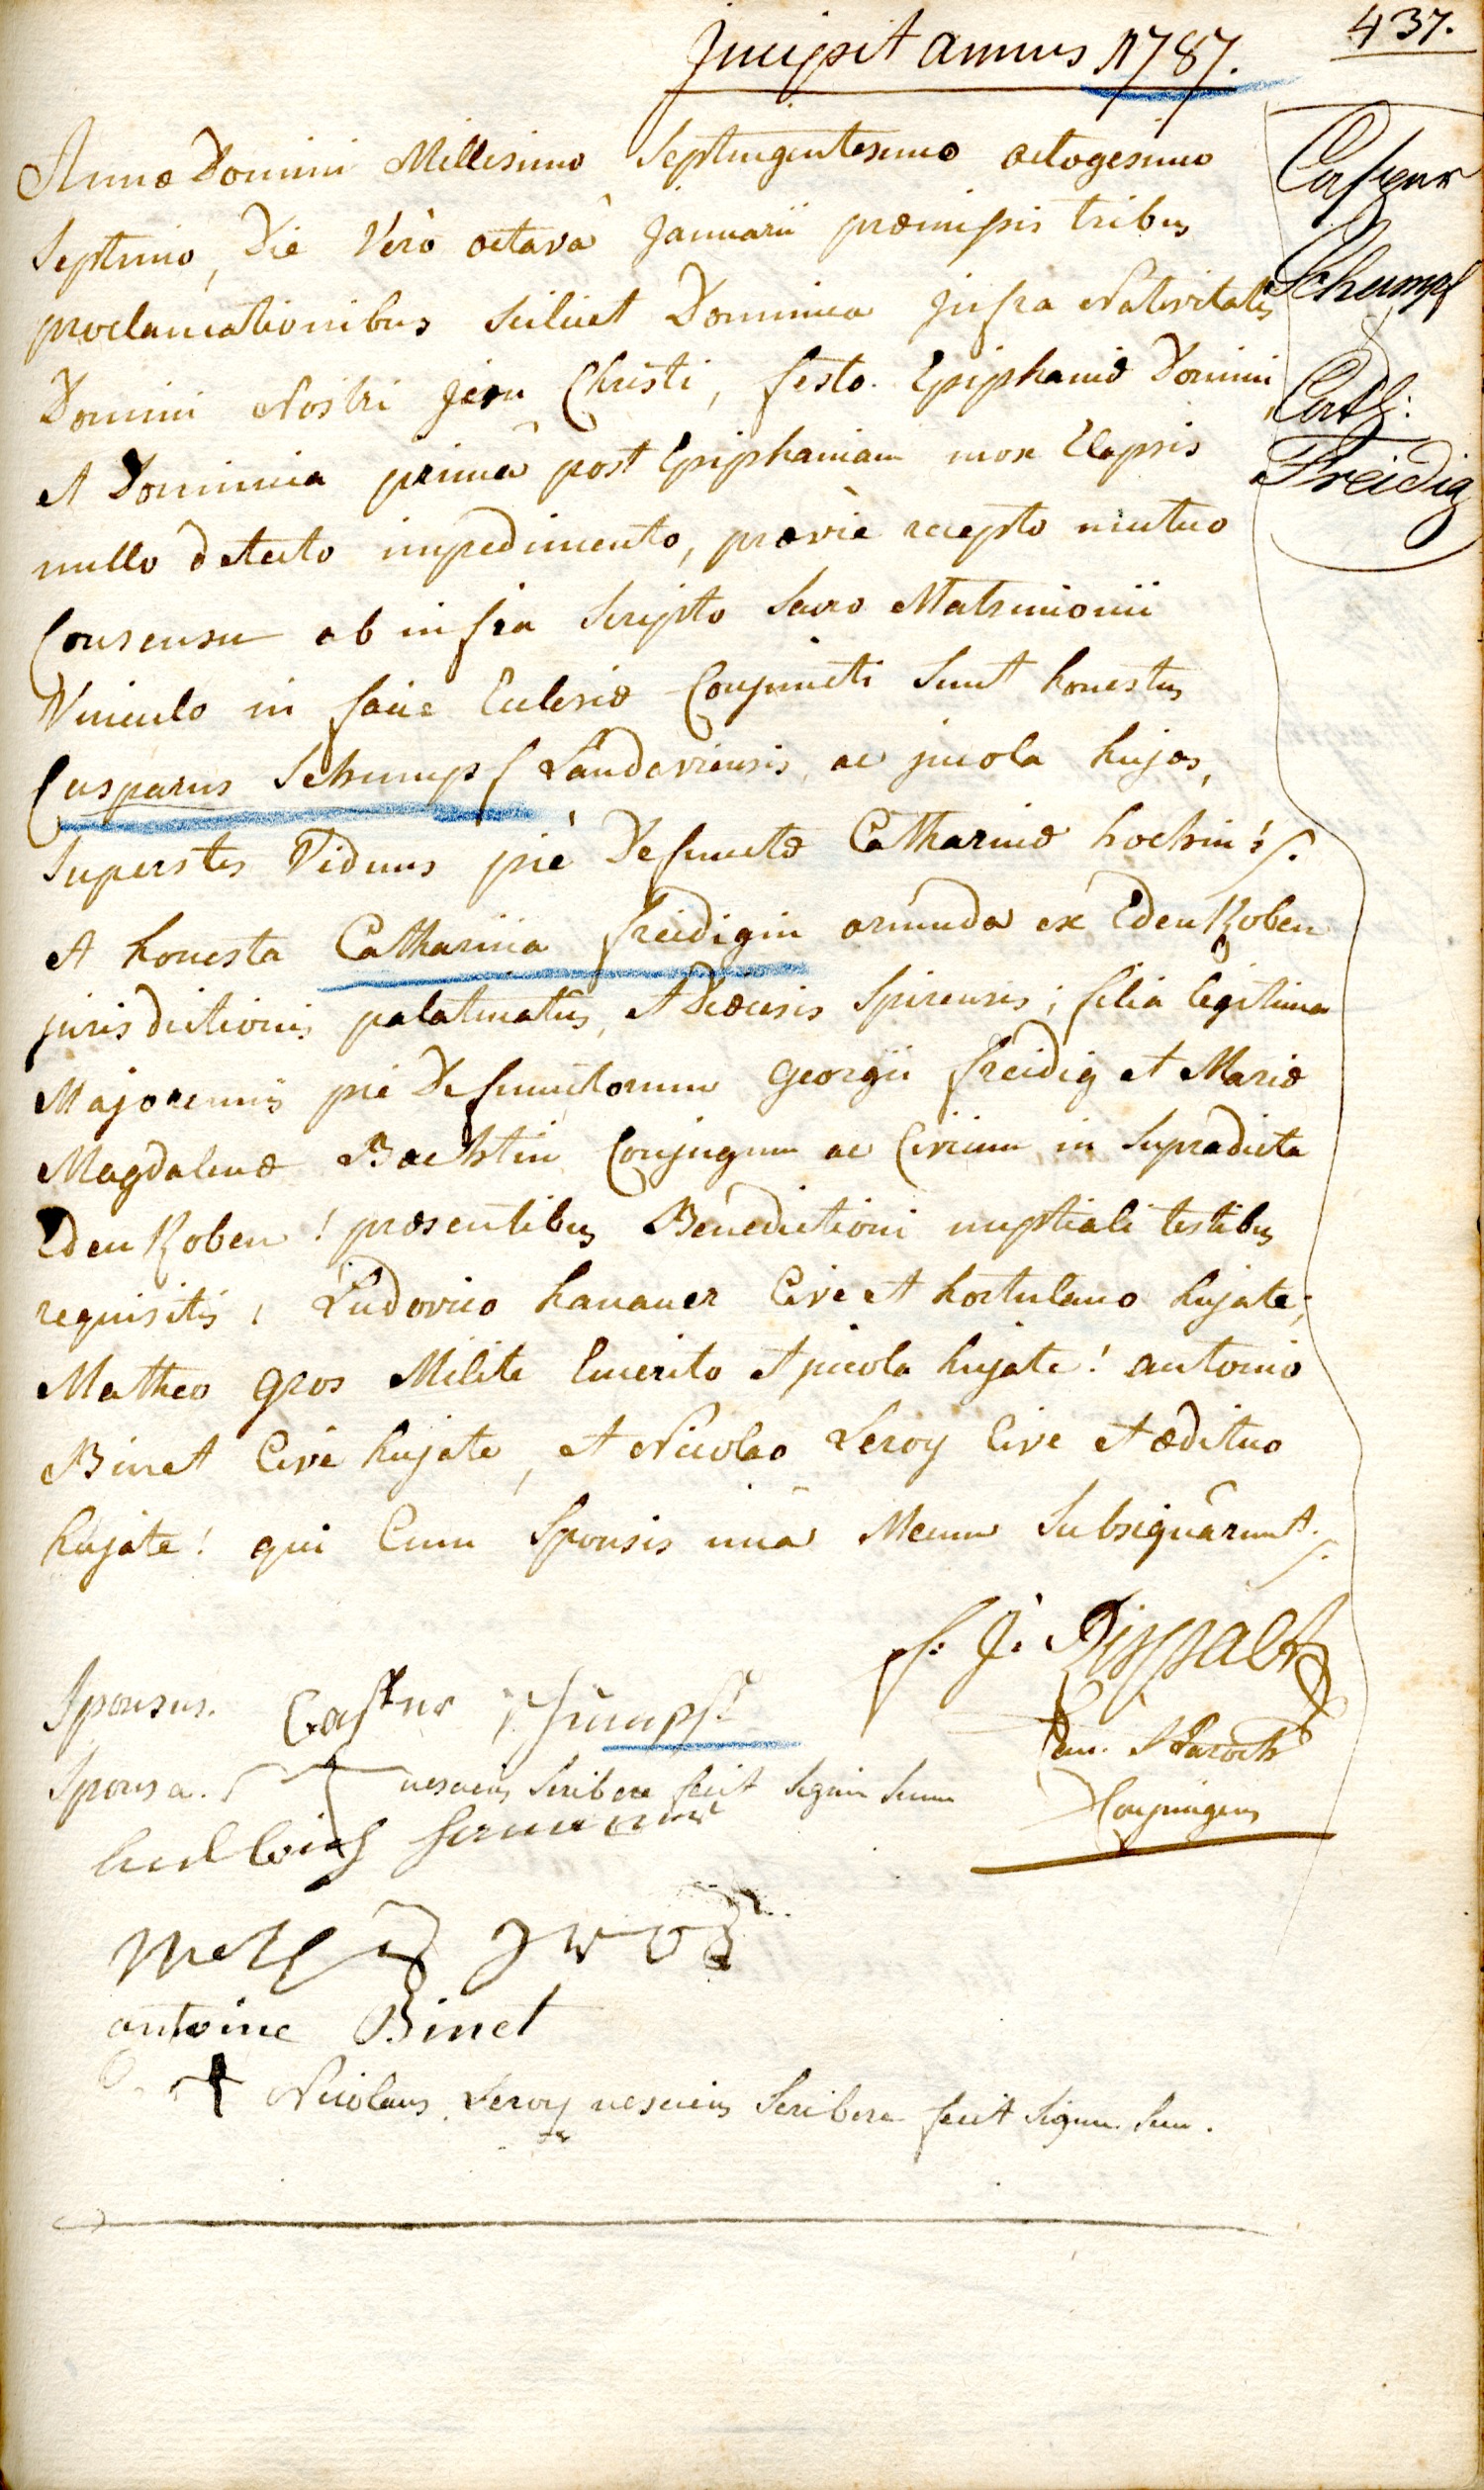 437.
Incipit annus 1787.
Caspar
Schumpf
Cath:
Freidig
Anno Domini Millesimo Septingentesimo octogesimo
Septimo, Die Vero octavâ Januarii præmissis tribus
proclamationibus scilicet Dominica Infra Nativitatis
Domini Nostri Jesu Christi, festo Epiphaniæ Domini,
et Dominica primâ post Epiphaniam mox Elapsis
nullo detecto impedimento, prævie recepto mutuo
Consensu ab infra scripto Sacro Matrimonii
Vinculo in facie Ecclesiæ Conjuncti sunt honestus
Casparus Schumpf Landaviensis, ac incola hujas,
superstes Viduus piè Defunctæ Catharinæ hochin :/.
et honesta Catharina freidigin oriunda ex EdenKoben
jurisdictionis palatinatus, et Diœcesis Spirensis; filia legitima
Majorennis piè Defunctorum Georgii freidig et Mariæ
Magdalenæ Bachtin Conjugum ac Civium in supradicta
EdenKoben! præsentibus Benedictioni nuptiali testibus
requisitis, Ludovico hanauer Cive et hortulano hujate;
Matheo gros Milite Emerito et incola hujate! antonio
Binet Cive hujate, et Nicolao Leroy Cive et ædituo
hujate! qui Cum Sponsis unà Mecum Subsignârunt./.
Sponsus. Casper schumpf
Conjungens
Sponsa. nesciens scribere fecit signum suum
ludwich hanauer
antoine Binet
Nicolaus Leroy nesciens scribere fecit signum suu.